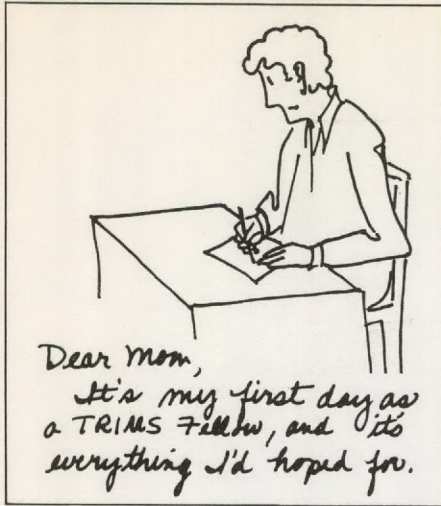 Dear Mom,
It's my first day as
a TRIMS Fellow, and it's
everything I'd hoped for.